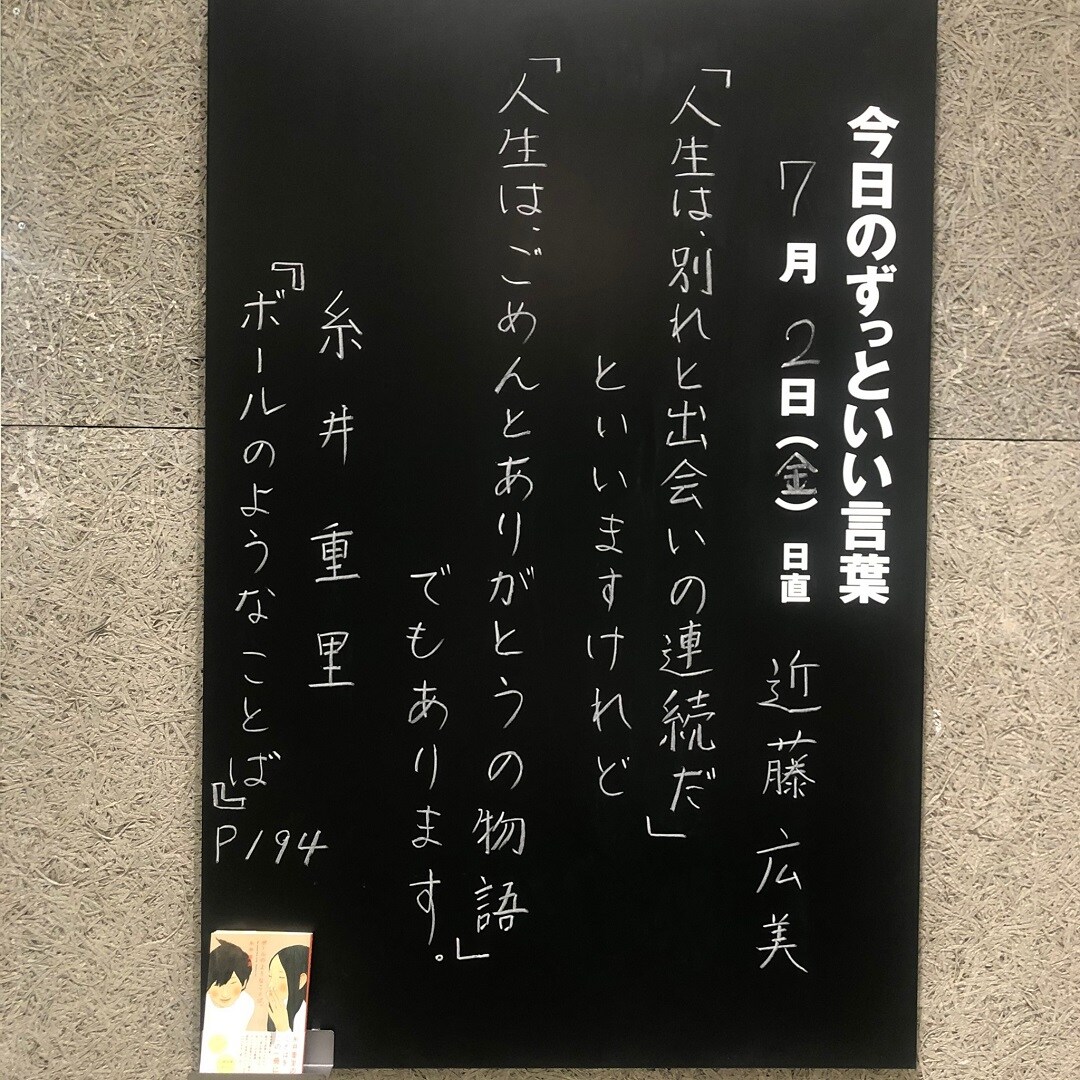 今日のずっといい言葉
7月2日(金)日直 近藤広美
「人生は、別れと出会いの連続だ」
といいますけれど
「人生は、ごめんとありがとうの物語」
でもあります。
糸井重里
『ボールのようなことば』
P194